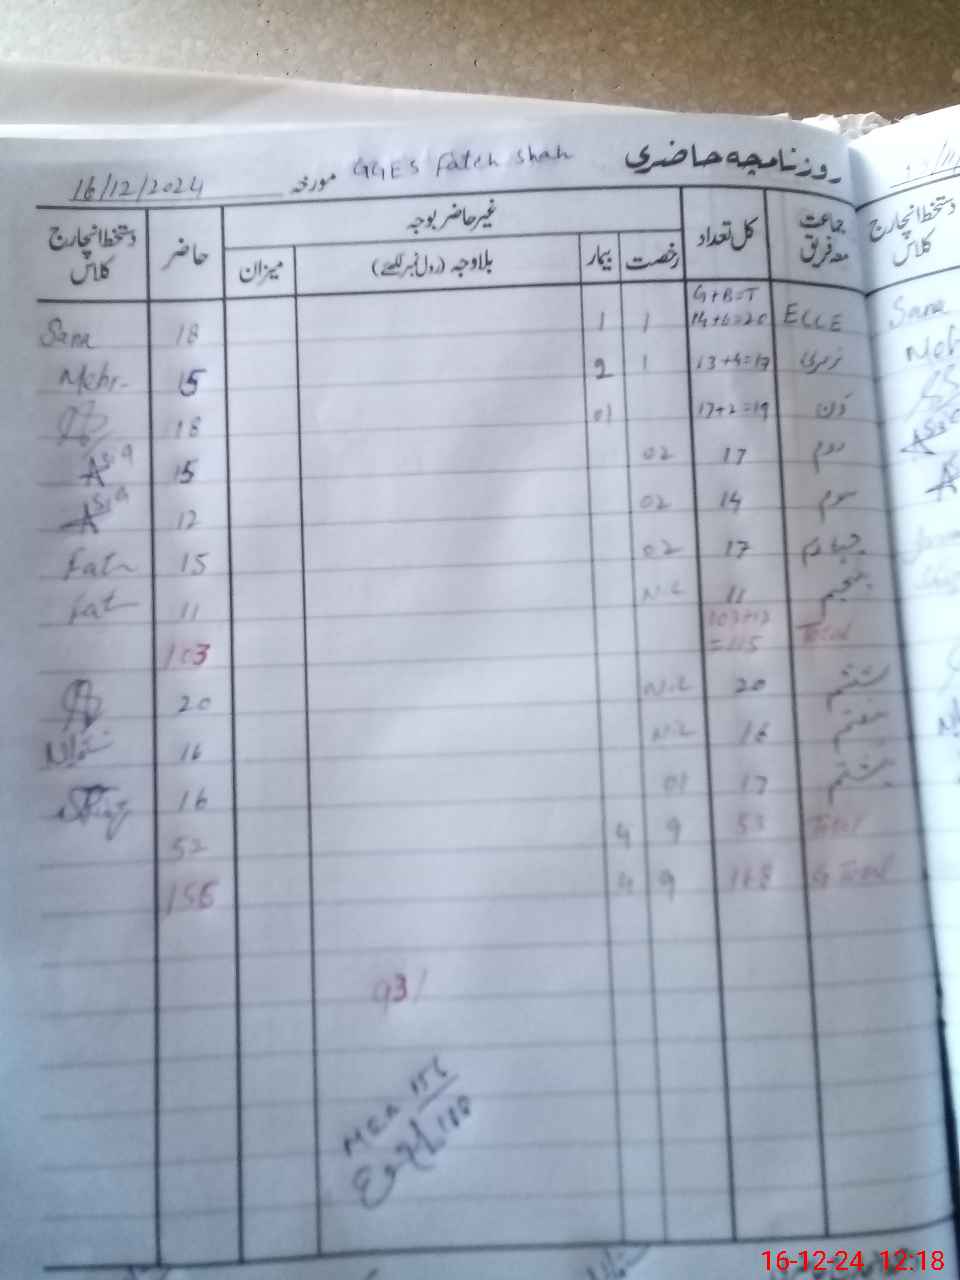 روزنامچہ حاضری GGES Fateh Shah مورخہ 16/12/2024
جماعت معہ فریق کل تعداد غیر حاضر بوجہ حاضر دستخط انچارج کلاس
رخصت بیمار بلاوجہ (رول نمبر لکھیے) میزان
G+B=T
ECCE 14+6=20 1 1 18 Sana
نرسری 13+4=17 1 2 15 Mehr
ون 17+2=19 01 18
دوم 17 02 15 Asia
سوم 14 02 12 Asia
چہارم 17 02 15 Fat
پنجم 11 Nil 11 Fat
Total 103+12 103
=115
ششم 20 Nil 20
ہفتم 16 Nil 16
ہشتم 17 01 16
Total 53 9 4 52
G Total 168 9 4 155
93/
MEA 156
168
دستخط انچارج کلاس
Sana
Meh
Asia
16-12-24 12:18